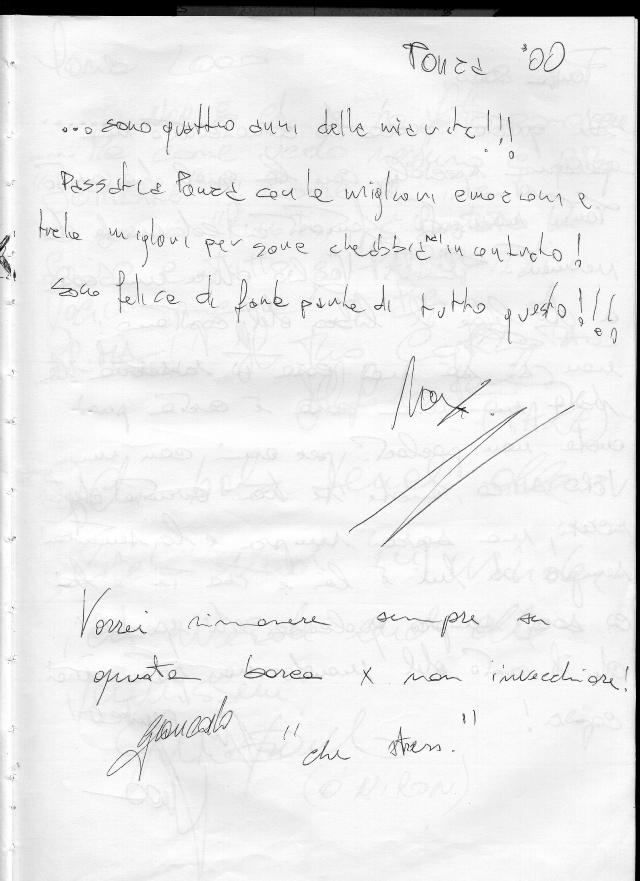 Ponza '00
... sono quattro anni della mia vita!!!
Passati a Ponza con le migliori emozioni e
tra le migliori persone che abbia mai incontrato!
Sono felice di far parte di tutto questo!!!
Max.
Vorrei rimanere sempre su
questa barca x non invecchiare!
Giancarlo "che stress."